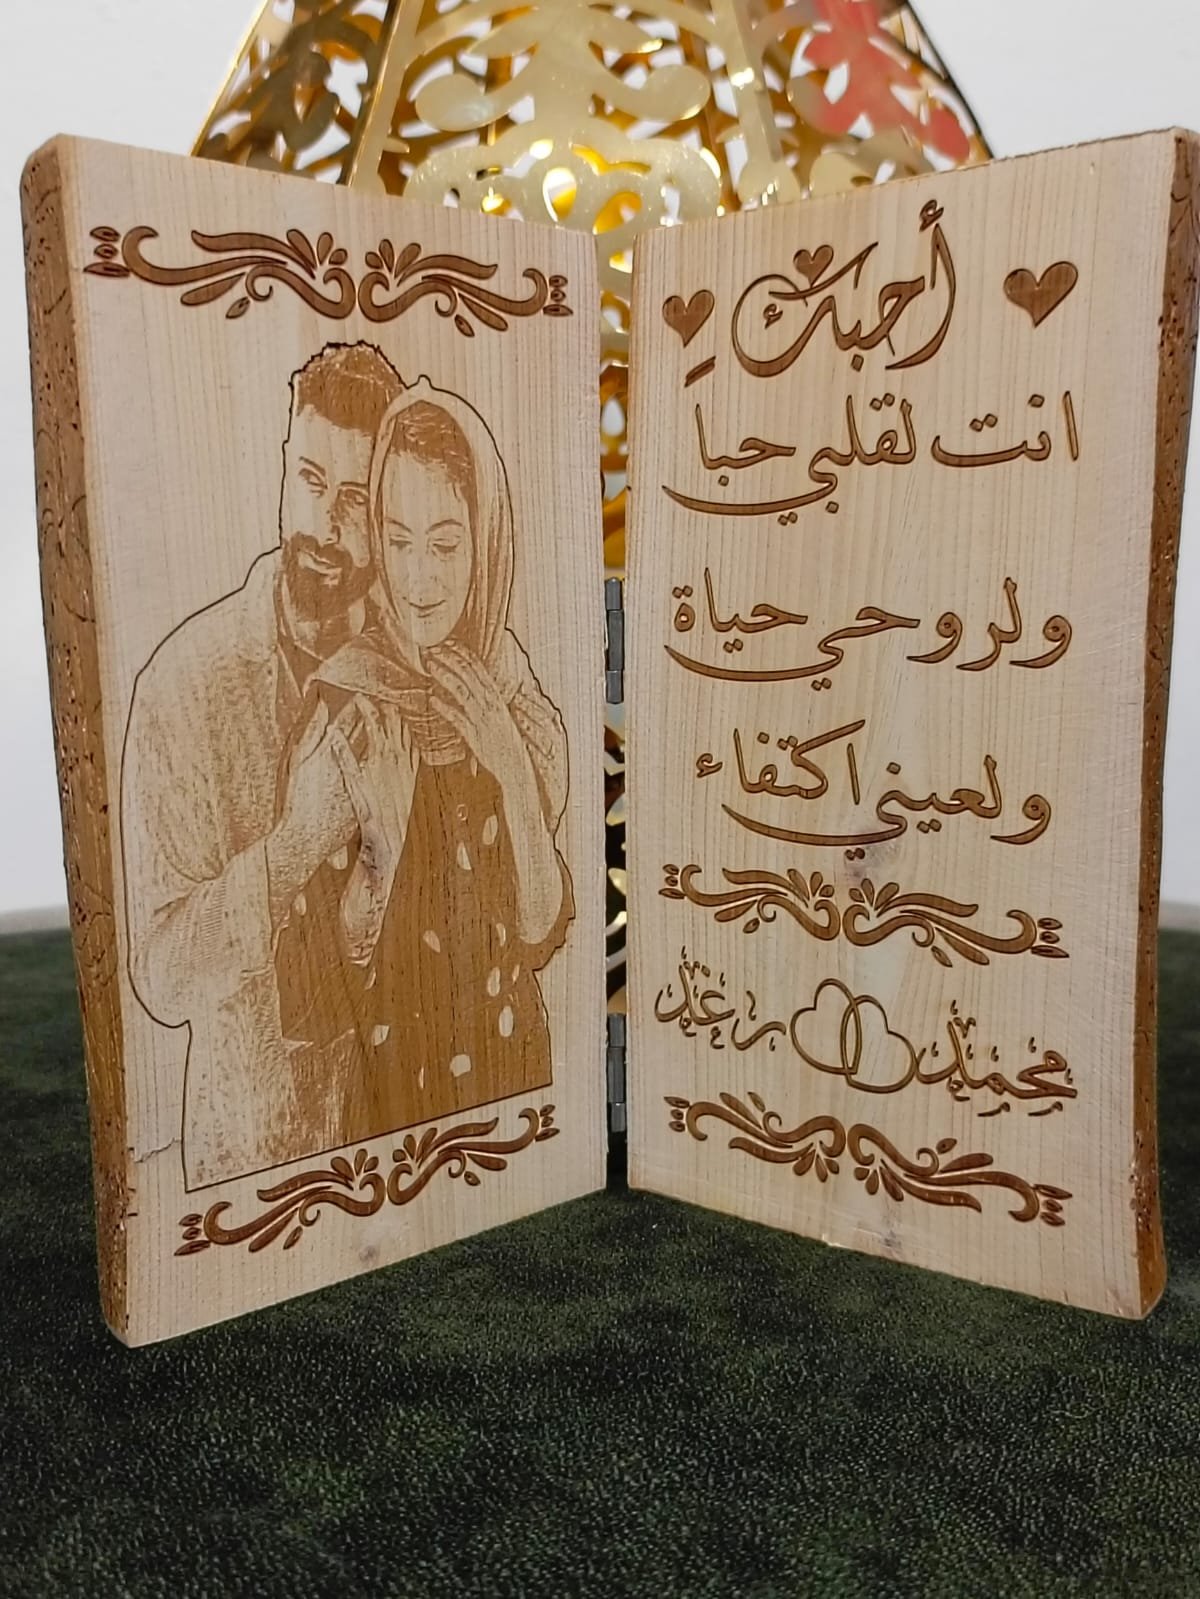 أحبك
انت لقلبي حباً
ولروحي حياة
ولعيني اكتفاء
محمد رغد